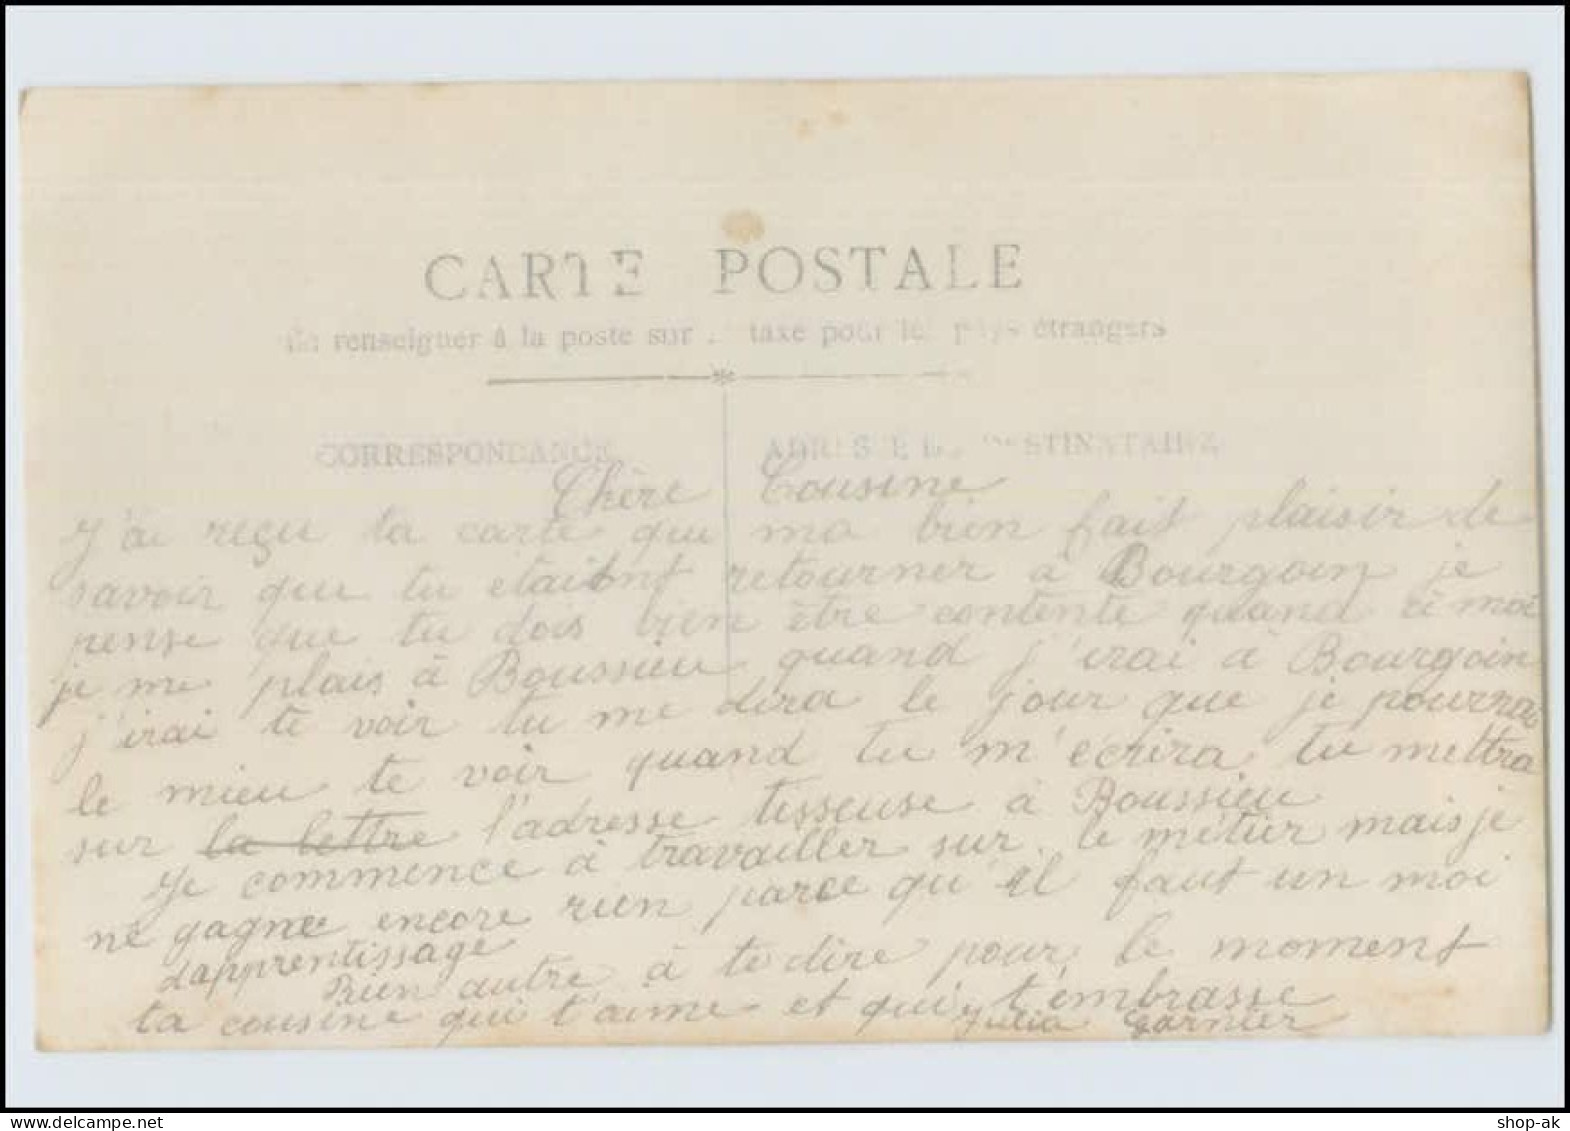 CARTE POSTALE
renseigner à la poste sur taxe pour les pays étrangers
CORRESPONDANCE
Chère Cousine
J'ai reçu ta carte qui ma bien fait plaisir de
savoir que tu etaitont retourner à Bourgoin je
pense que tu dois bien être contente quand à moi
je me plais à Boussieu quand j'irai à Bourgoin
j'irai te voir tu me dira le jour que je pourrai
le mieu te voir quand tu m'écrira tu mettra
sur la lettre l'adresse tisseuse à Boussieu
Je commence à travailler sur le métier mais je
ne gagne encore rien parce qu'il faut un moi
dapprentissage
Rien autre à te dire pour le moment
ta cousine qui t'aime et qui t'embrasse
Julia Garnier
shop-ak